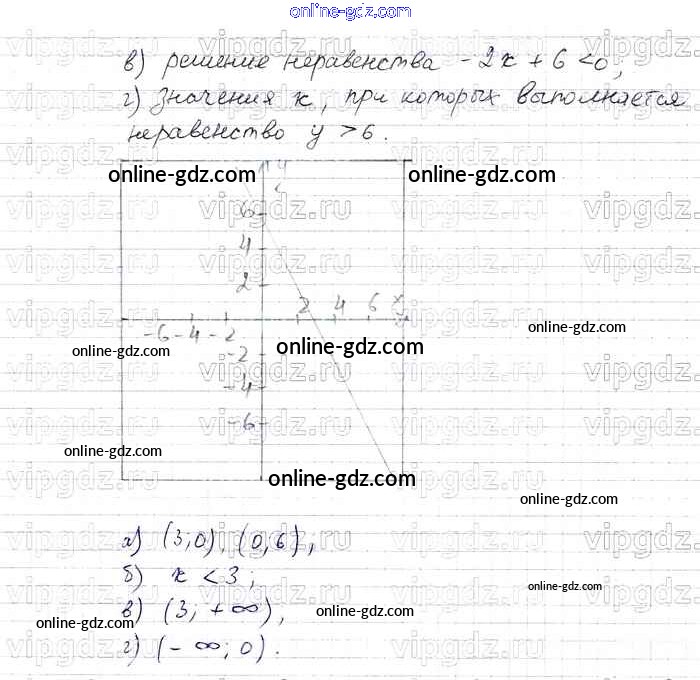 online-gdz.com
в) решение неравенства -2x + 6 < 0;
г) значения x, при которых выполняется
неравенство y > 6.
online-gdz.com online-gdz.com
vipgdz.ru vipgdz.ru vipgdz.ru vipgdz.ru
y
6
4
2
2 4 6 x
-6 -4 -2
online-gdz.com online-gdz.com online-gdz.com
-2
-4
-6
online-gdz.com
online-gdz.com
online-gdz.com
а) (3; 0), (0; 6),
б) x < 3;
в) (3; +∞),
г) (-∞; 0).
online-gdz.com
online-gdz.com
online-gdz.com